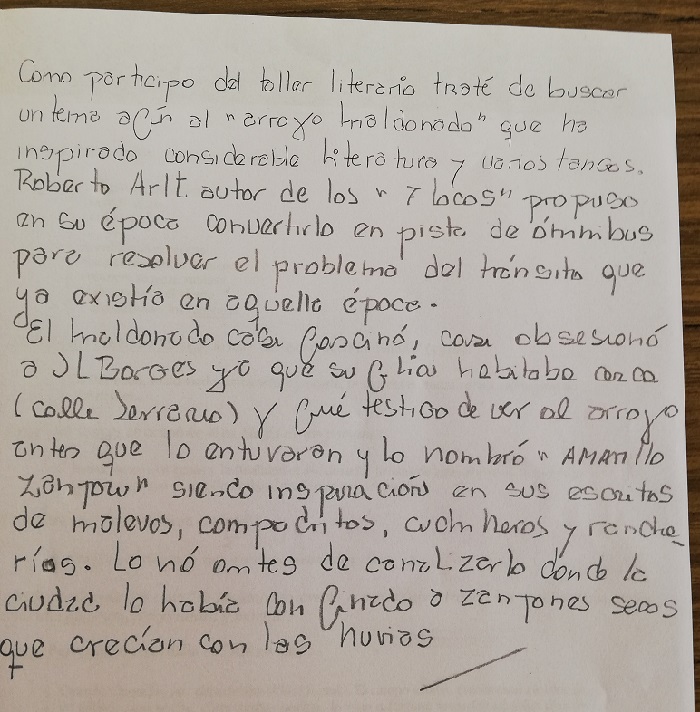 Como participo del taller literario traté de buscar
un tema afín al "arroyo maldonado" que ha
inspirado considerable literatura y varios tangos.
Roberto Arlt. autor de los "7 locos" propuso
en su época convertirlo en pista de ómnibus
para resolver el problema del tránsito que
ya existía en aquella época.
El maldonado casi fascinó, casi obsesionó
a JLBorges ya que su flia habitaba cerca
(calle Serrano) y fué testigo de ver al arroyo
antes que lo entuvaran y lo nombró "AMARillo
Zanjown" siendo inspiración en sus escritos
de malevos, compadritos, cuchilleros y ranche_
rías. Lo nó antes de canalizarlo donde la
ciudad lo había confinado a zanjones secos
que crecían con las lluvias